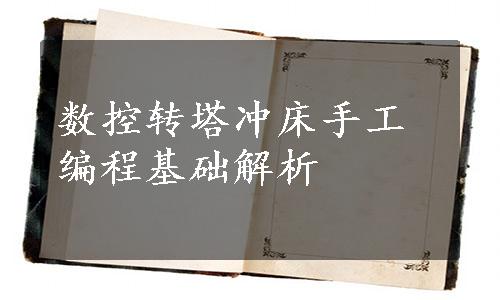 数控转塔冲床手工
编程基础解析